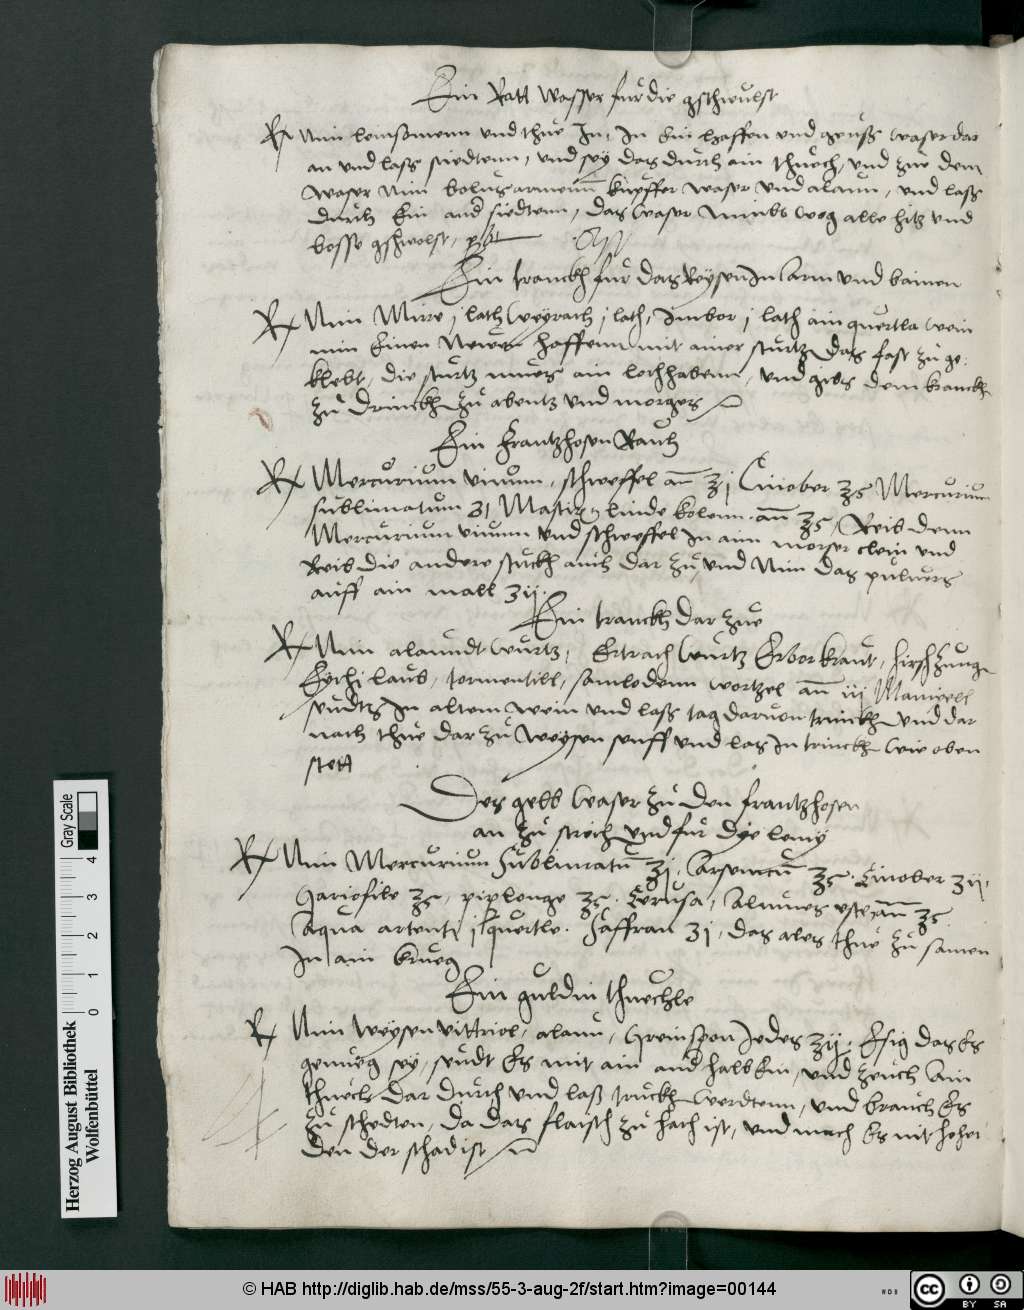 Ein Ratt wasser fur die gschwulst
Rx Nim leinsomenn und thue In, In Ein haffen und geuß waser dar
an und laß siedtenn, und sey das durch ain thuech, und zue dem
waser nim bolus armenū kupffer waser und alaun, und laß
durch Ein and siedtenn, das waser nimbt weg alle hitz und
bosse gschwolst,
Ein tranckh fur das Reysen In Arm und bainen
Rx Nim Mirre j lath Weyrach j lath, Imber j lath ain quertla wein
nim Einen Newen haffenn mit ainer sturtz das fast zu ge
klebt, die sturtz mues ain loch habenn, und gibs dem kranckh
zu drinckh zu abentz und morgens
Ein frantzhosen Rauch
Rx Mercurium vivum, schweffel an ʒj Cinober ʒs Mercurium
sublimatum ʒj Mastix linde kolenn an ʒs, Reib denn
Mercurium vivum und schweffel In aim morser clein und
Reib die andere stuckh auch dar zu, und Nim das pulvers
auff ain mall ʒij.
Ein tranckh dar zue
Rx Nim alaundt wurtz, Ertrach wurtz Erber kraut, hirsch zunge
Eychi laub, tormentill, wortzel an iij Manipell
seudts In altem wein und laß tag darvon trinckh und dar
nach thue dar zu weysen senff und las In trinckh wie oben
stett
Des gelb waser zu den frantzhosen
an zu streich und fur dye lemy
Rx Nim Mercurium Sublimatū ʒj, Arsenicū ʒs. Cinober ʒij,
Gariofile ʒs, piplonge ʒs. Cerusa, Alumes uste an ʒs
Aqua artenti j quertle. Saffran ʒj, das ales thue zu samen
In ain krueg
Ein guldin thuechle
Rx Nim weysen vittriol, alaun, Greinspon Jedes ʒij. Esig das Es
genueg sey, seudt Es mit ain and halb Ein, und zeuch Ain
thuech dar durch und laß truckh werdtenn, und brauch Es
zu schedten, da das flaisch zu hoch ist, und mach Es nit hoher
den der schad ist
Herzog August Bibliothek
Wolfenbüttel
0 1 2 3 4
Gray Scale
© HAB http://diglib.hab.de/mss/55-3-aug-2f/start.htm?image=00144
cc BY SA